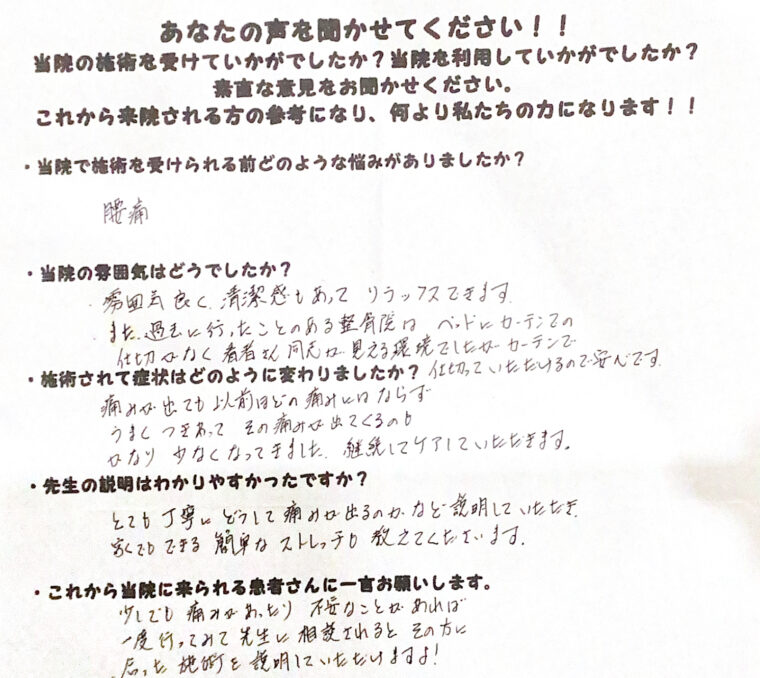 あなたの声を聞かせてください！！
当院の施術を受けていかがでしたか？当院を利用していかがでしたか？
素直な意見をお聞かせください。
これから来院される方の参考になり、何より私たちの力になります！！
・当院で施術を受けられる前どのような悩みがありましたか？
腰痛
・当院の雰囲気はどうでしたか？
雰囲気良く、清潔感もあって リラックスできます。
また、過去に行ったことのある整骨院は ベッドにカーテンでの
仕切りがなく 患者さん同志が見える環境でしたが カーテンで
仕切っていただけるので安心です。
・施術されて症状はどのように変わりましたか？
痛みが出ても以前ほどの痛みにはならず
うまくつきあって その痛みが出てくるのも
かなり少なくなってきました。継続してケアしていただきます。
・先生の説明はわかりやすかったですか？
とても丁寧にどうして痛みが出るのかなど説明していただき
家でもできる簡単なストレッチも教えてくださいます。
・これから当院に来られる患者さんに一言お願いします。
少しでも痛みがあったり 不安なことがあれば
一度行ってみて先生に相談されると その方に
合った施術を説明していただけますよ！